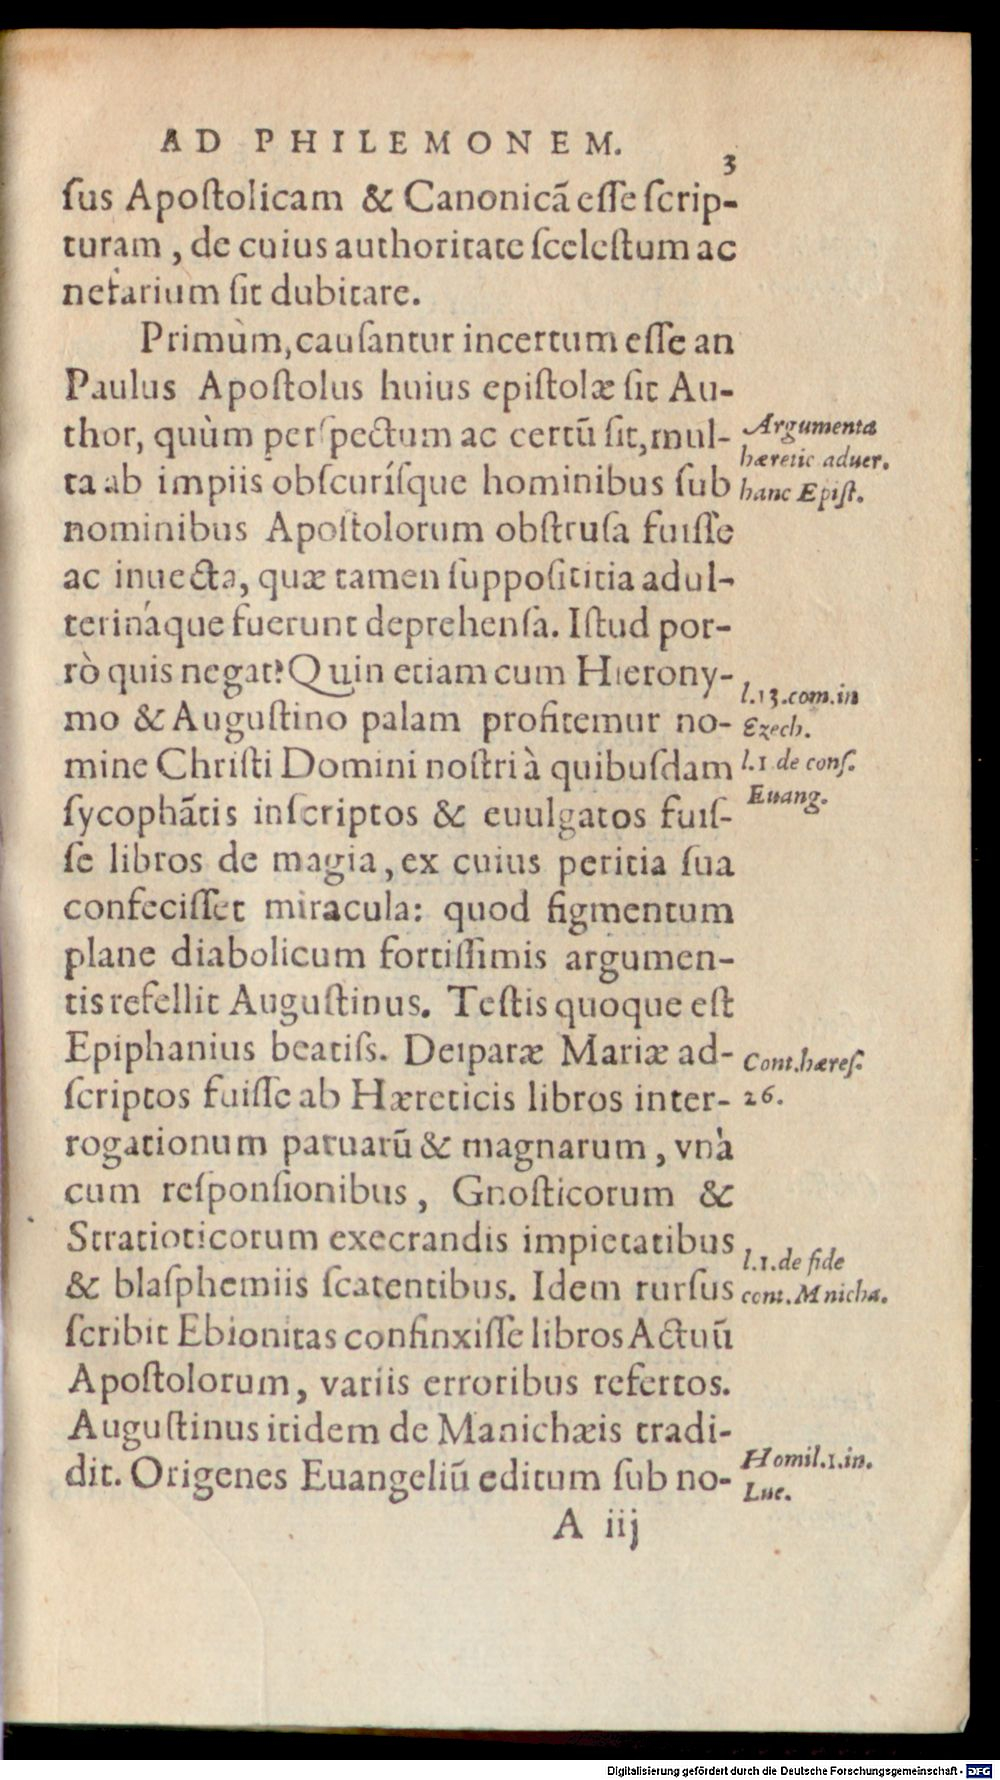 AD PHILEMONEM.
3
ſus Apoſtolicam & Canonicã eſſe ſcrip-
turam, de cuius authoritate ſceleſtum ac
nefarium ſit dubitare.
Primùm, cauſantur incertum eſſe an
Paulus Apoſtolus huius epiſtolæ ſit Au-
thor, quùm perſpectum ac certũ ſit, mul-
ta ab impiis obſcuríſque hominibus ſub
nominibus Apoſtolorum obſtruſa fuiſſe
ac inuecta, quæ tamen ſuppoſititia adul-
terináque fuerunt deprehenſa. Iſtud por-
rò quis negat? Quin etiam cum Hierony-
mo & Auguſtino palam profitemur no-
mine Chriſti Domini noſtri à quibuſdam
ſycophãtis inſcriptos & euulgatos fuiſ-
ſe libros de magia, ex cuius peritia ſua
confeciſſet miracula: quod figmentum
plane diabolicum fortiſſimis argumen-
tis refellit Auguſtinus. Teſtis quoque eſt
Epiphanius beatiſs. Deiparæ Mariæ ad-
ſcriptos fuiſſe ab Hæreticis libros inter-
rogationum paruarũ & magnarum, vnà
cum reſponſionibus, Gnoſticorum &
Stratioticorum execrandis impietatibus
& blaſphemiis ſcatentibus. Idem rurſus
ſcribit Ebionitas confinxiſſe libros Actuũ
Apoſtolorum, variis erroribus refertos.
Auguſtinus itidem de Manichæis tradi-
dit. Origenes Euangeliũ editum ſub no-
A iij
Argumenta
hæretic aduer.
hanc Epiſt.
l.13.com.in
Ezech.
l.1 de conſ.
Euang.
Cont.hæreſ.
26.
l.1.de fide
cont.Mnicha.
Homil.1.in.
Luc.
Digitalisierung gefördert durch die Deutsche Forschungsgemeinschaft - DFG